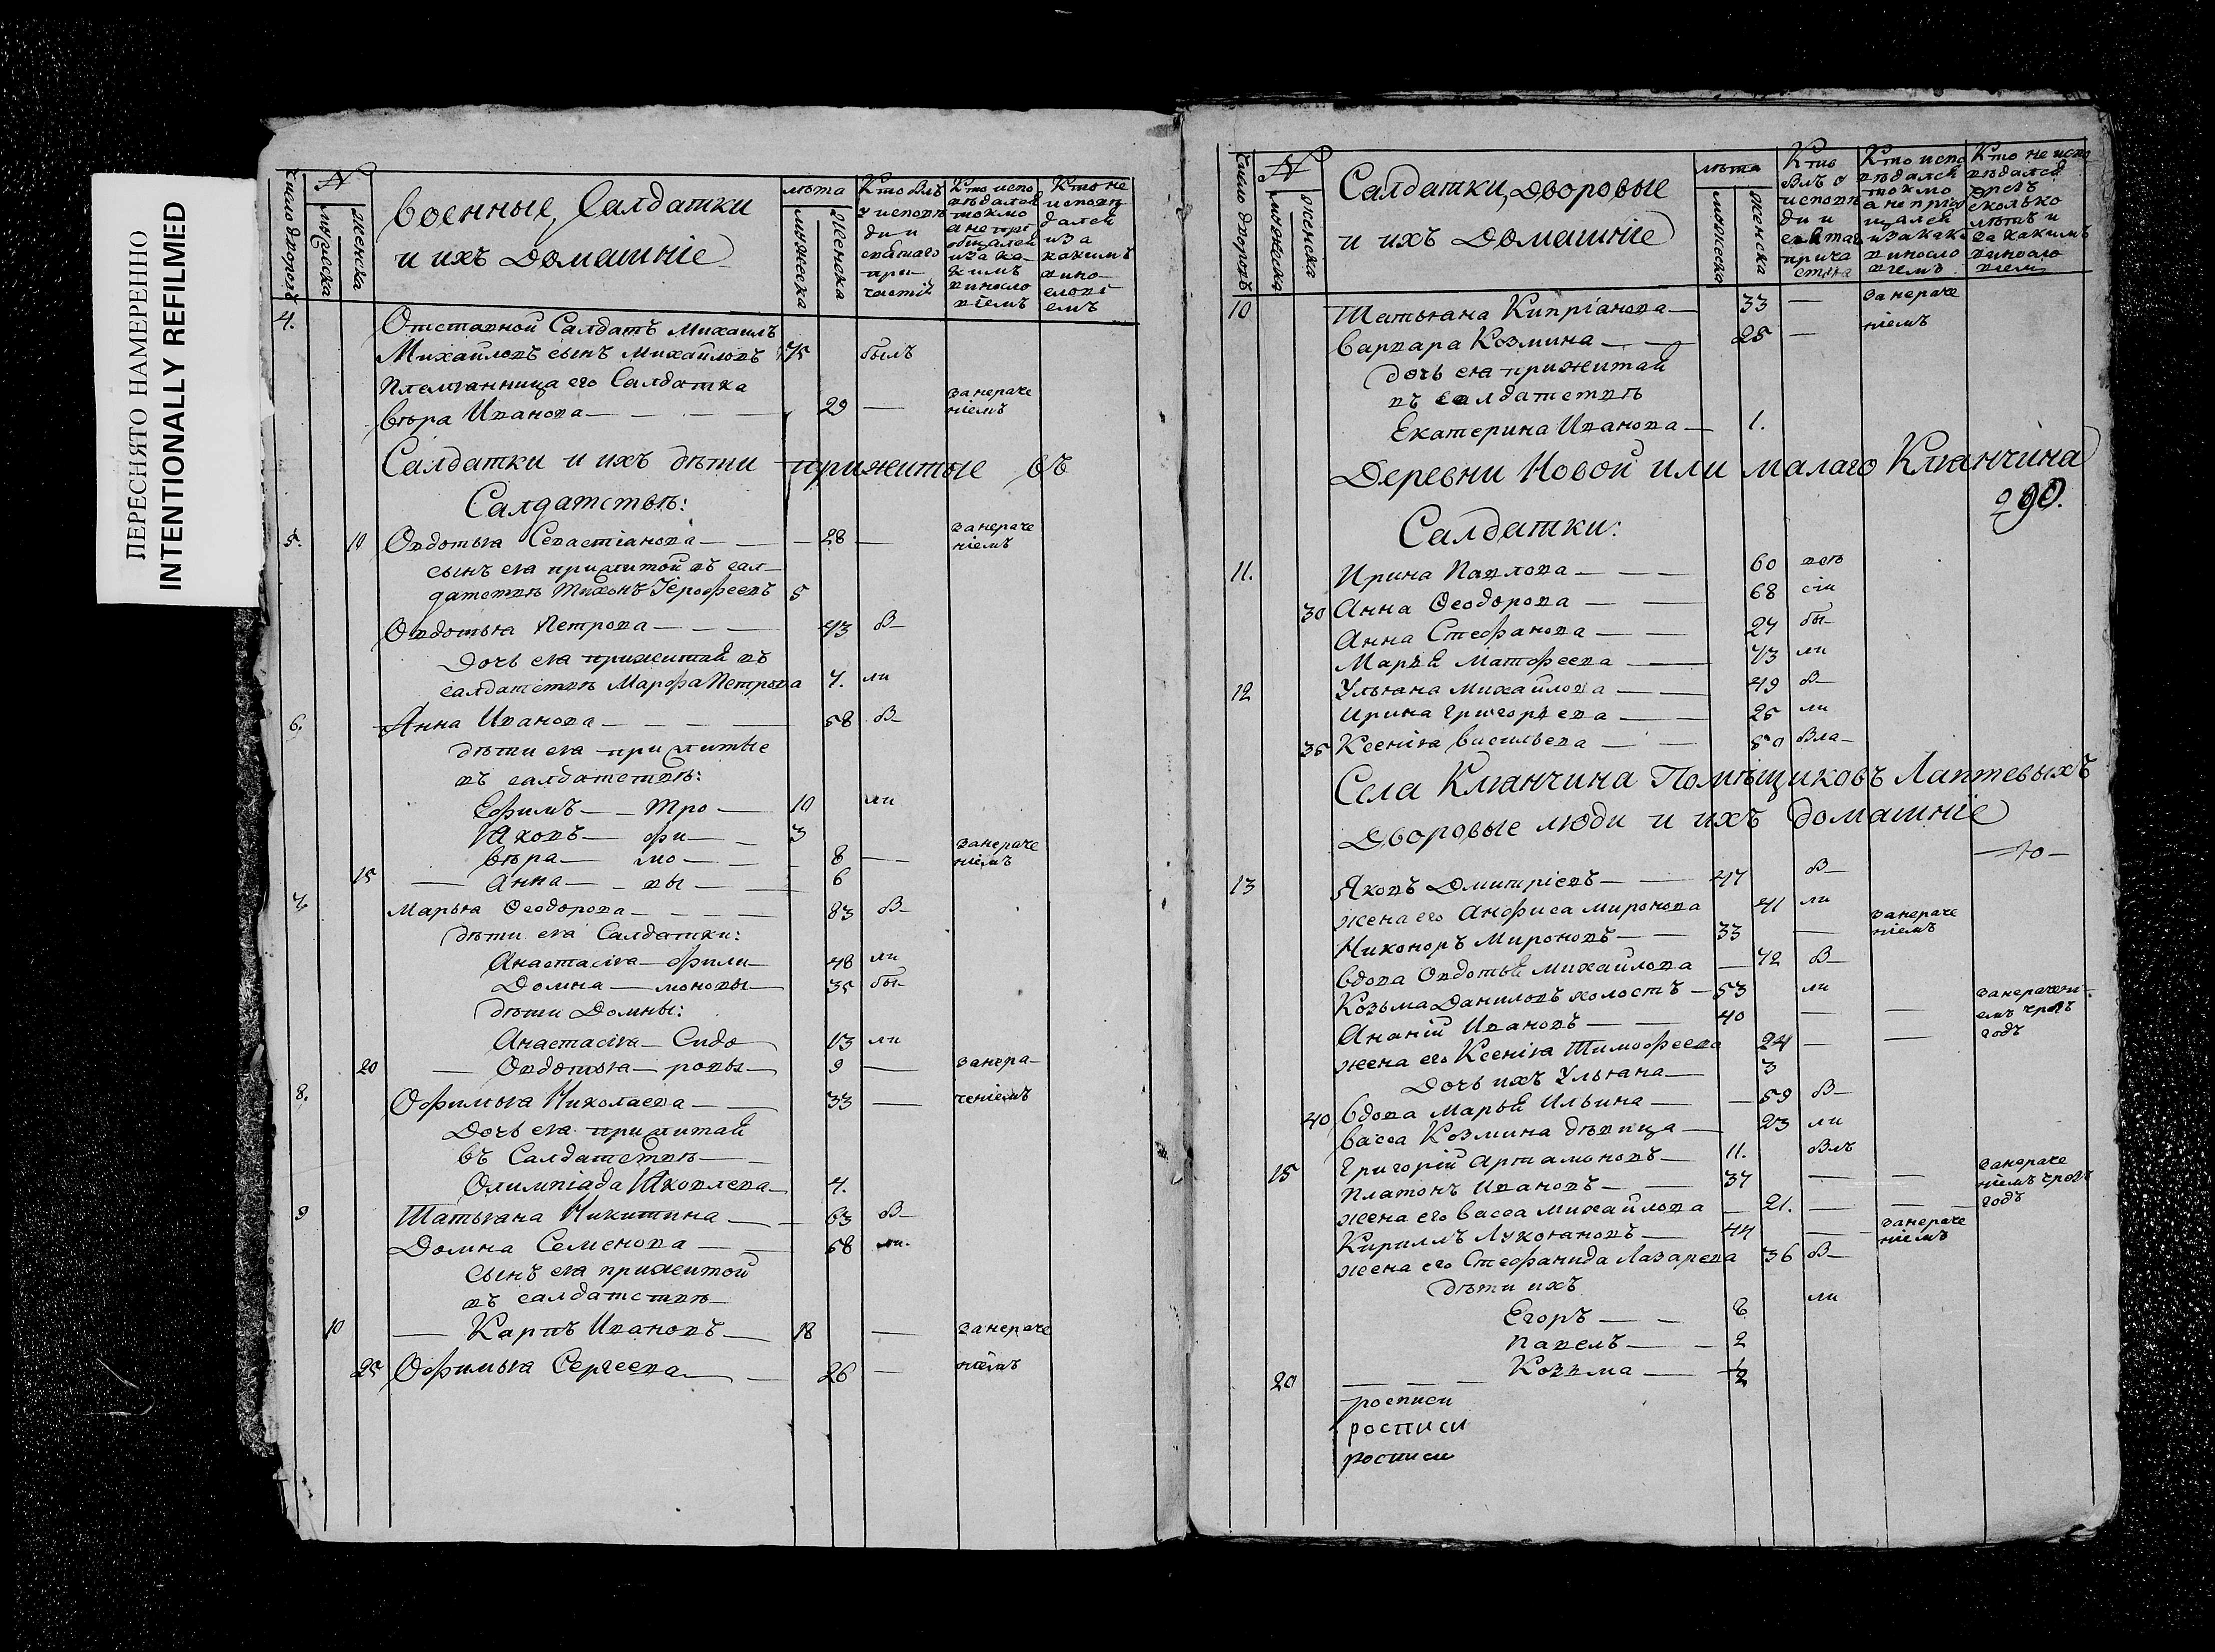 ПЕРЕСНЯТО НАМЕРЕННО
INTENTIONALLY REFILMED
число дворовъ
№
мужеска
женска
Военные, Салдатки
и ихъ домашніе
лѣта
мужеска
женска
Кто былъ
у исповѣ
ди и
святаго
при-
частія
Кто испо
вѣдался
токмо
а не прі
общался
и за ка-
кимъ
виносло
віемъ
Кто не
исповѣ
дался
и за
какимъ
вино-
слові
емъ
4.
Отставной Салдатъ Михаилъ
Михайловъ сынъ Михайловъ 75 былъ
Племянница его Салдатка
Вѣра Иванова 29 — за нераче
ніемъ
Салдатки и ихъ дѣти прижитые въ
Салдатствѣ:
5. 10 Овдотья Севастіанова 28 — за нераче
ніемъ
сынъ ея прижитой въ сал-
датствѣ Тихонъ Іерофеевъ 5
Овдотья Петрова 43 в-
Дочь ея прижитая въ
салдатствѣ Марфа Петрова 7. ли
6. Анна Иванова 58 в-
дѣти ея прижитые
въ салдатствѣ:
Ефимъ — Тро — 10 ли
Яковъ — фи — 3
Вѣра — мо — 8 — за нераче
ніемъ
15 — Анна — вы — 6
7. Марья Ѳеодорова 83 в-
дѣти ея Салдатки:
Анастасія — фили — 48 ли
Домна — моновы — 35 бы-
дѣти Домны:
Анастасія — Сидо 13 ли
20 — Овдотья — ровы 9 — за нера-
ченіемъ
8. Офимья Николаева 33 —
Дочь ея прижитая
въ Салдатствѣ
Олимпіада Яковлева 4.
9 Татьяна Никитина 63 в-
Домна Семенова 58 ли-
Сынъ ея прижитой
въ салдатствѣ
10 — Карпъ Ивановъ 18 — за нераче
ніемъ
25 Офимья Сергеева 26 —
число дворовъ
№
мужеска
женска
Салдатки, дворовые
и ихъ домашніе
лѣта
мужеска
женска
Кто
былъ у
исповѣ
ди и
святаго
прича
стія
Кто испо
вѣдался
токмо
а не прио
щался
и за каки
виносло
віемъ
Кто не испо
вѣдался
чрезъ
сколько
лѣтъ и
за какимъ
винosло
віем
10 Татьяна Кипріанова 33 — за нераче
ніемъ
Варвара Козмина 25 —
дочь ея прижитая
въ салдатствѣ
Екатерина Иванова 1.
Деревни Новой или малаго Клянчина
290.
Салдатки:
11. Ирина Павлова 60 всѣ
30 Анна Ѳеодорова 68 сіи
Анна Стефанова 27 бы-
Марья Матфеева 43 ли
12 Ульяна Михайлова 49 в-
Ирина Григорьева 25 ли
35 Ксенія Васильева 50 была-
Села Клянчина Помѣщиковъ Лаптевыхъ
Дворовые люди и ихъ домашніе
13 Яковъ Дмитріевъ 47 в-
жена его Анфиса Миронова 41 ли
Никоноръ Мироновъ 33 — за нераче
ніемъ
Вдова Овдотья Михайлова 42 в-
Козьма Даниловъ холостъ 53 ли
Ананій Ивановъ 40 — — за нерачені-
емъ чрезъ
годъ
жена его Ксенія Тимофеева 24 — —
Дочь ихъ Ульяна 3
40 Вдова Марья Ильина 59 в-
Васса Козмина дѣвица 23 ли
15 Григорій Артамоновъ 11. былъ
Платонъ Ивановъ 37 — — за нераче
ніемъ чрезъ
годъ
жена его Васса Михайлова 21. — —
Кириллъ Лукояновъ 44 — за нераче
ніемъ
жена его Стефанида Лазарева 36 в-
дѣти ихъ ли
Егоръ
Павелъ 2
20 Козьма 1/2
росписи
росписи
росписи